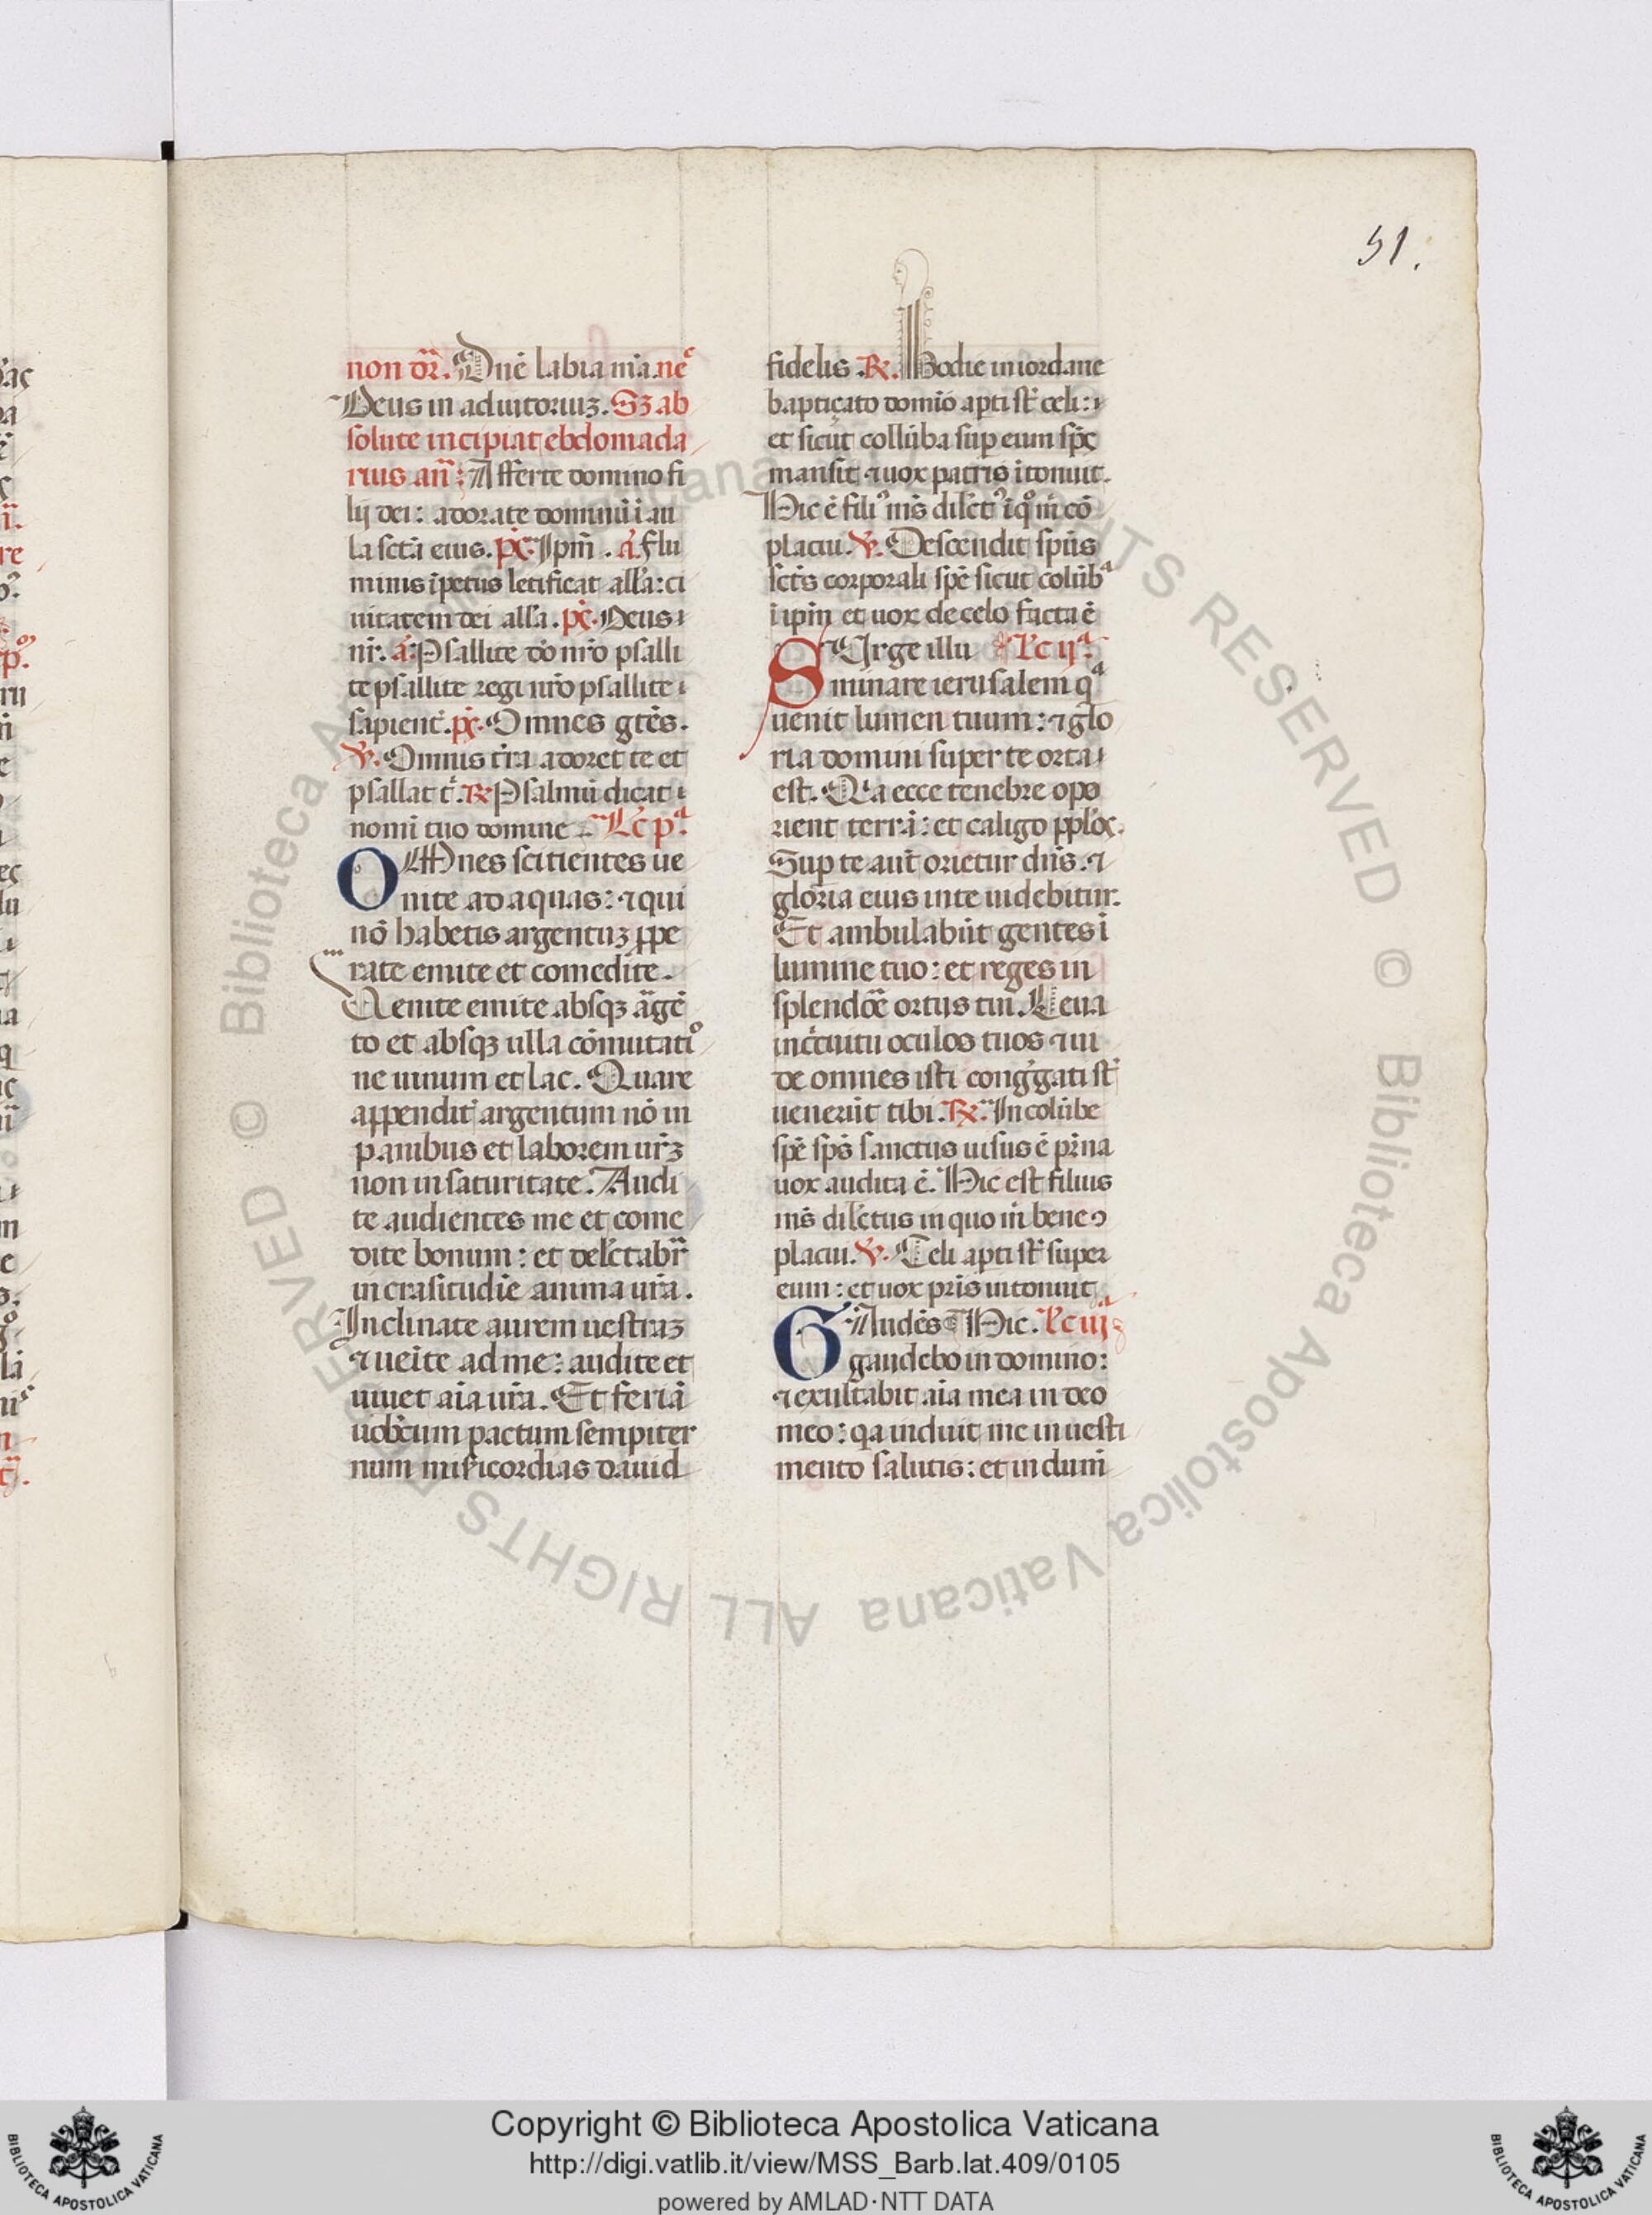 51.
non dr̃. Dnē labia m̃a. ne͛
Deus in adiutoriuꝫ. Sꝫ ab
solute incipiat ebdomada
rius añ: Afferte domino fi
lij dei: adorate dominū ī au
la sctā eius. pꝰ. Ipm̄. ā. Flu
minis īpetus letificat all'a: ci
uitatem dei all'a. pꝰ. Deus
nr̄. ā. Psallite dō nr̄o psalli
te psallite regi nr̄o psallite
sapient̓. pꝰ. Omnes gtēs.
℣. Omnis tr̄ra adoret te et
psallat t̓. ℞ Psalmū dicat
nomī tuo domine. Lc̄ pᵃ.
OMnes scitientes ue
nite ad aquas: ⁊ qui
nō habetis argentuꝫ ꝓpe
rate emite et comedite.
Uenite emite absqꝫ ãgē
to et absqꝫ ulla cōmutatiº
ne uinum et lac. Quare
appendit̓ argentum nō in
panibus et laborem ur̄ꝫ
non in saturitate. Audi
te audientes me et come
dite bonum: et delc̄tabr̃
in crasitudīe anima ur̄a.
Inclinate aurem uestraꝫ
⁊ ueīte ad me: audite et
uiuet aīa ur̄a. Et feriā
uobc̄um pactum sempiter
num misīcordias dauid
fidelis. ℞. Hodie in iordane
bapticato domīo apti st̄ celi:
et sicut collūba sup eum sp̄c
mansit ⁊ uox patris ītonuit.
Hic ē filiꝰ m̄s dilc̄tꝰ ī qº m̄ cō
placui. ℣. Descendit sp̄us
sct̄s corporali spē sicut colūbᵃ
ī ipm̄ et uox de celo facta ē
SUrge illu Lc̄ ijᵃ.
minare ierusalem qᵃ
uenit lumen tuum: ⁊ glo
ria domini super te orta
est. Q̄a ecce tenebre ope
rient terrā: et caligo ppl'oc.
Sup te aut̄ orietur dn̄s. ⁊
gloria eius in te uidebitur.
Et ambulabūt gentes ī
lumine tuo: et reges in
splendōe ortus tui. Leua
in c̓cuitu oculos tuos ⁊ ui
de omnes isti cong̓gati st̄
uenerūt tibi. ℞. In colūbe
spē sp̄s sanctus uisus ē pr̄na
uox audita ē. Hic est filius
m̄s dilc̄tus in quo m̄ bene
placui. ℣. Celi apti st̄ super
eum: et uox pr̄is intonuit
GAudēs Hic. Lc̄ iijᵃ
gaudebo in domino:
⁊ exultabit aīa mea in deo
meo: qa induit me in uesti
mento salutis: et indum̄
Copyright © Biblioteca Apostolica Vaticana
http://digi.vatlib.it/view/MSS_Barb.lat.409/0105
powered by AMLAD·NTT DATA